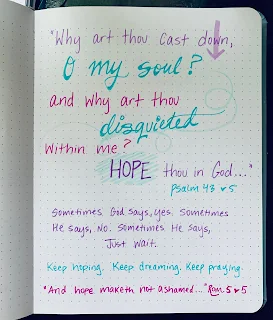 "Why art thou cast down,
O my soul?
and why art thou
disquieted
within me?
HOPE thou in God..."
Psalm 43 ♥ 5
Sometimes God says, Yes. Sometimes
He says, No. Sometimes He says,
Just wait.
Keep hoping. Keep dreaming. Keep praying.
"And hope maketh not ashamed..." Rom. 5 ♥ 5